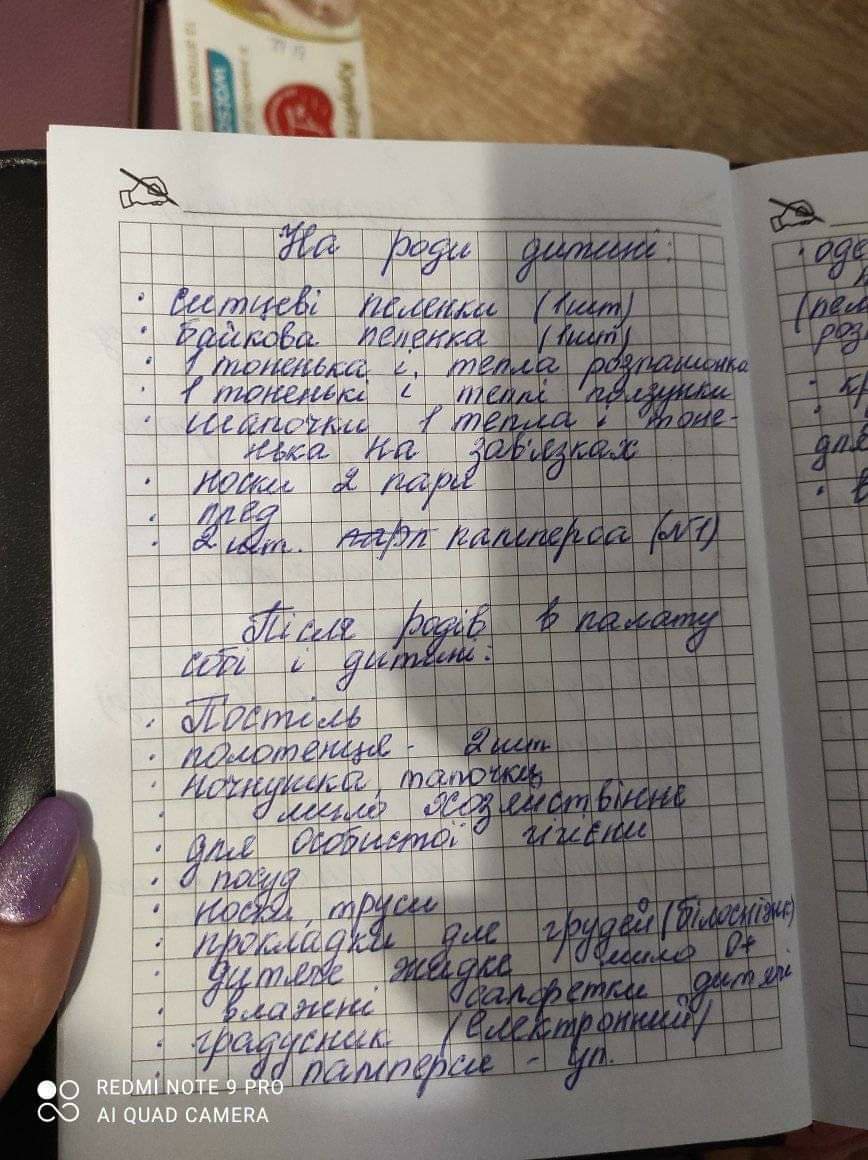 На роди дитині:
· ситцеві пеленки (1шт)
· байкова пеленка (1шт)
· 1 тоненька і тепла розпашонка
· 1 тоненькі і теплі ползунки
· шапочки 1 тепла і тоне-
нька на зав'язках
· носки 2 пари
· плед
· 2 шт. памперса (№1)
Після родів в палату
собі і дитині:
· Постіль
· полотенця - 2шт
· ночнушка, тапочки
· мило хозяйствінне
· для особистої гігієни
· посуд
· носки, труси
· прокладки для грудей (білосніжк)
· дитяче жидке мило 0+
· влажні салфетки дитячі
· градусник (електронний)
· памперси - уп.
· оде
(пел
роз
· кр
для
REDMI NOTE 9 PRO
AI QUAD CAMERA